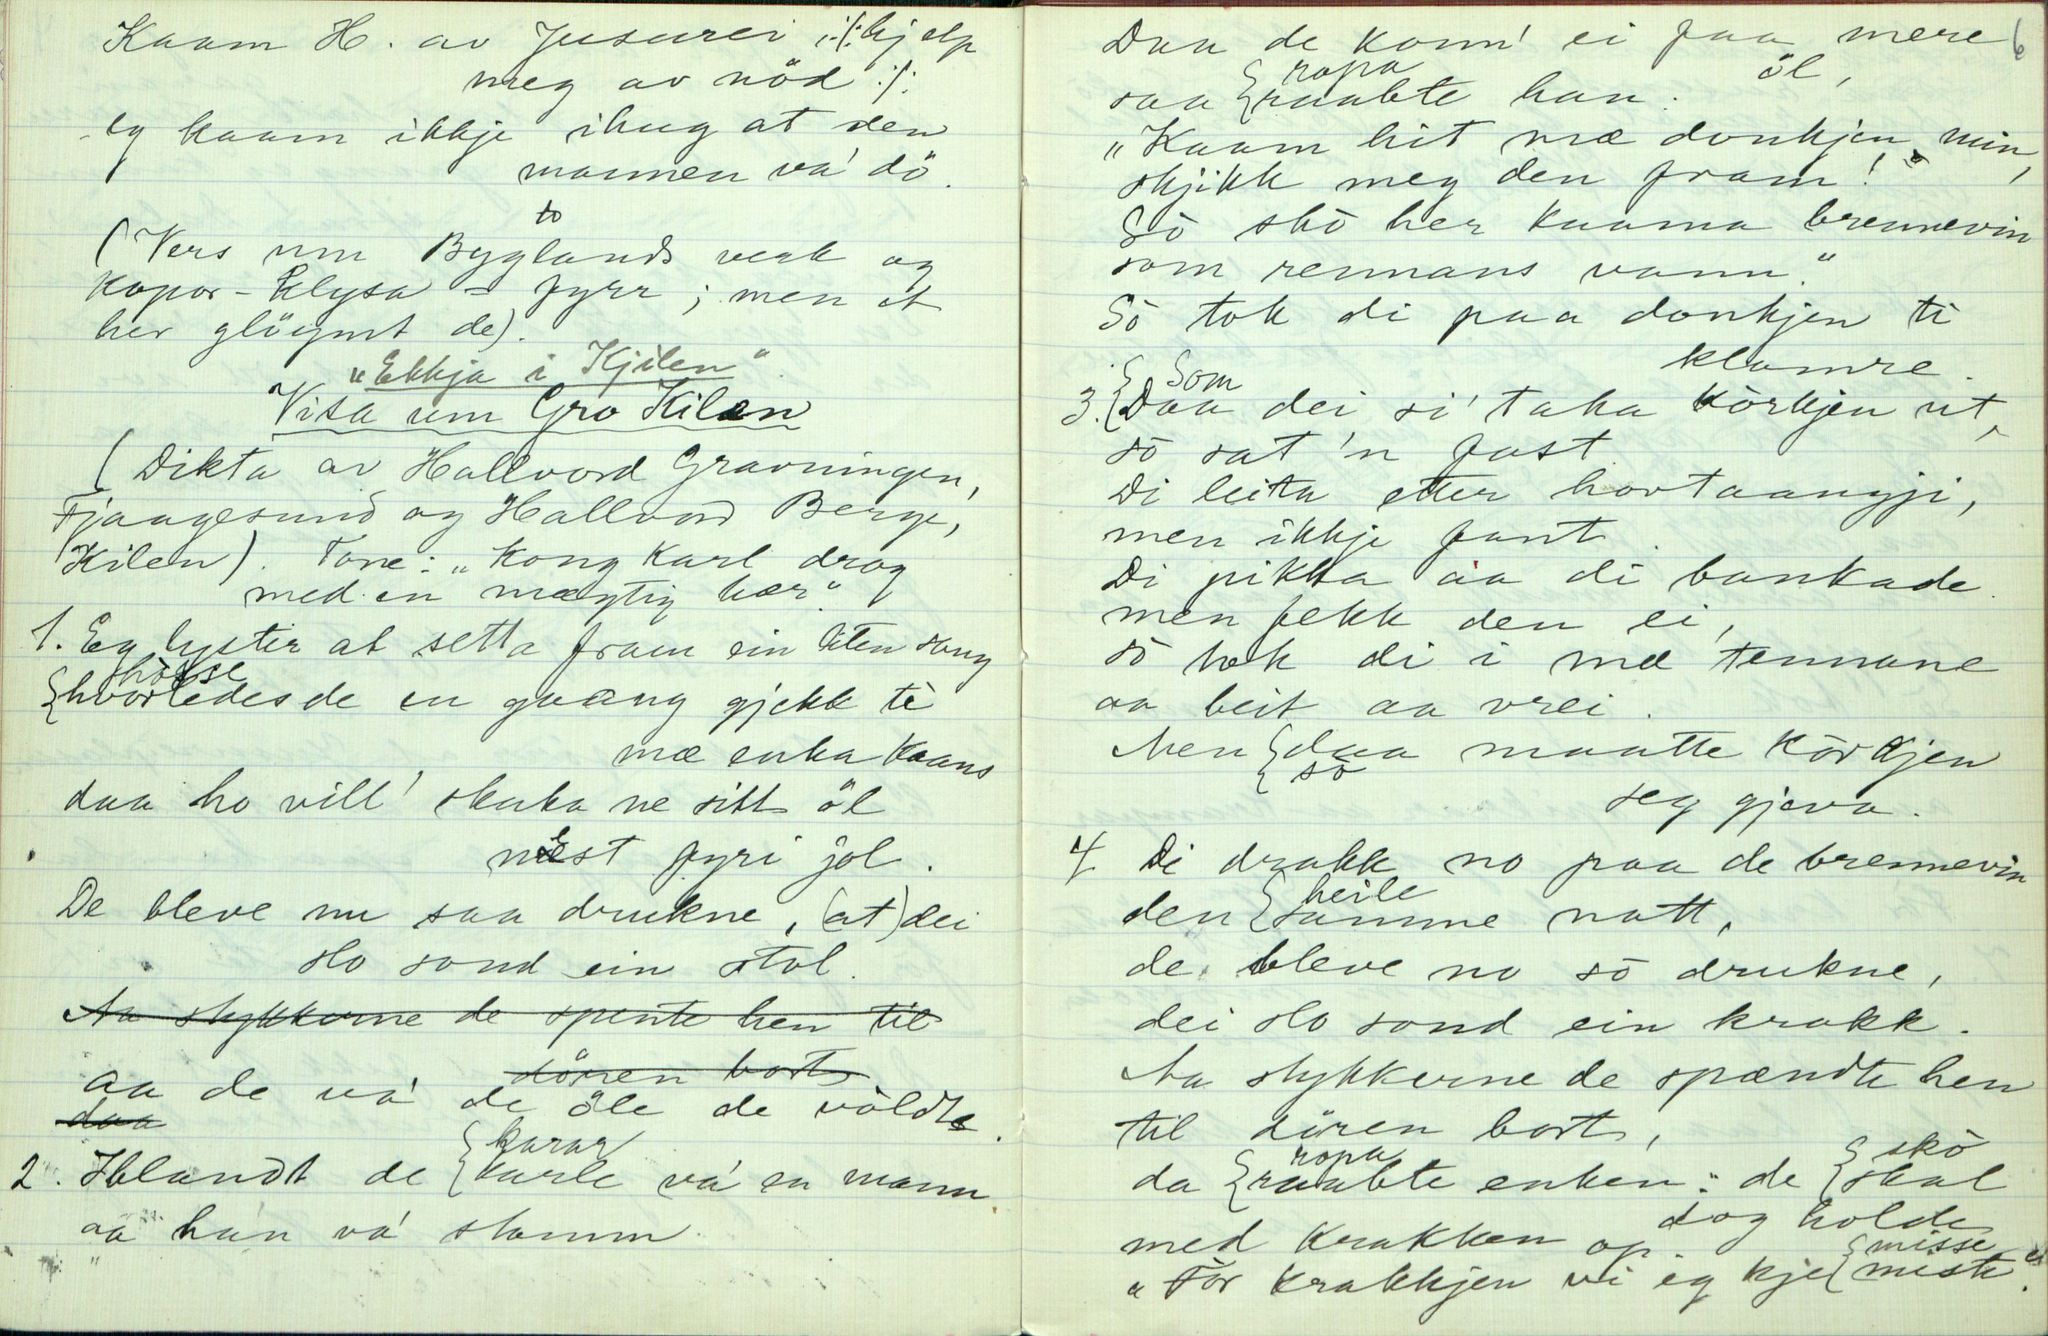 Kaam H. av Jusurei :/: hjelp
meg av nöd :/:
eg kaam ikkje ihug at den
mannen va' dö.
to
(Vers um Byglands verk og
Kopor-Elysa - fyrr; men et
her glöymt de).
"Ekkja i Kjilen"
Visa um Gro Kilen
(Dikta av Hallvord Gravningen,
Fjaagesund og Hallvord Berge,
Kilen). Tone: "Kong Karl drog
med en mægtig hær."
1. Eg lyster at setta fram ein liten sang
hòsse
{hvorledes de en gaang gjekk te
mæ enka Kaans
daa ho vill' skaka ne sitt öl
næst fyri jol.
De bleve nu saa drukne, (at) dei
slo sond ein stol.
Aa stykkerne de spente hen til
dören bort
aa de va' de öle de völdte.
daa
karar
2. Iblandt de {karle va' en mann
aa han va' stamm
6
Daa de konn' ei faa mere
öl,
ropa
saa {raabte han:
"Kaam hit mæ donkjen min,
skjikk meg den fram!
Sò skò her kaama brennevin
som rennans vann."
Sò tok di paa donkjen te
klamre.
Som
3. {Daa dei si' taka kòrkjen ut,
sò sat 'n fast
Di leita etter hovtaangji,
men ikkje fant.
Di pikka aa di bankade
men fekk den ei,
sò tok di i mæ tennane
aa beit aa vrei.
Men {daa maatte kòrkjen
sò
seg gjeva.
4. Di drakk no paa de brennevin
heile
den {samme natt,
de bleve no sò drukne,
dei slo sond ein krakk.
Aa stykkerne de spændte hen
til dören bort,
ropa skò
da {raabte enken: de {skal
dog holde
med krakken op.
misse
"For krakkjen vi eg kje {miste."